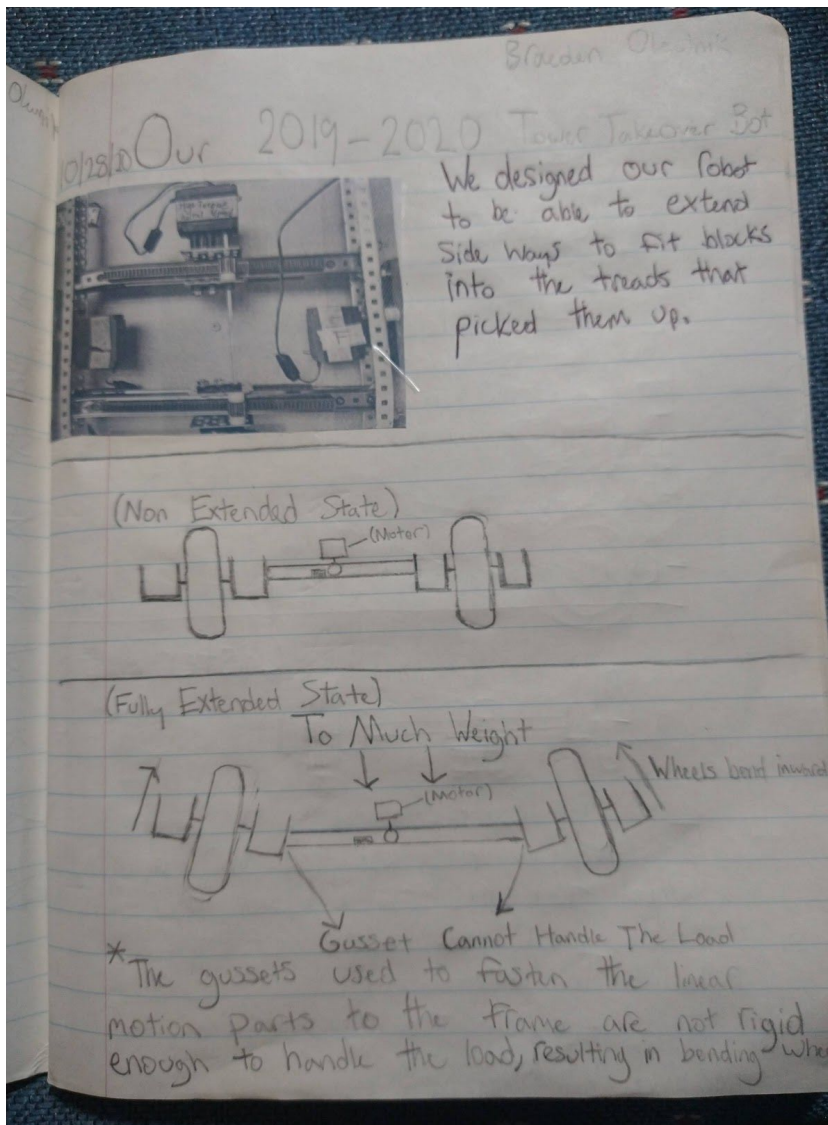 Braeden
10/28/20 Our 2019-2020 Tower Takeover Bot
We designed our robot
to be able to extend
Side Ways to fit blocks
into the treads that
picked them up.
(Non Extended State)
(Motor)
(Fully Extended State)
To Much Weight
(Motor)
Wheels bend inward
Gusset Cannot Handle The Load
*The gussets used to fasten the linear
motion parts to the frame are not rigid
enough to handle the load, resulting in bending